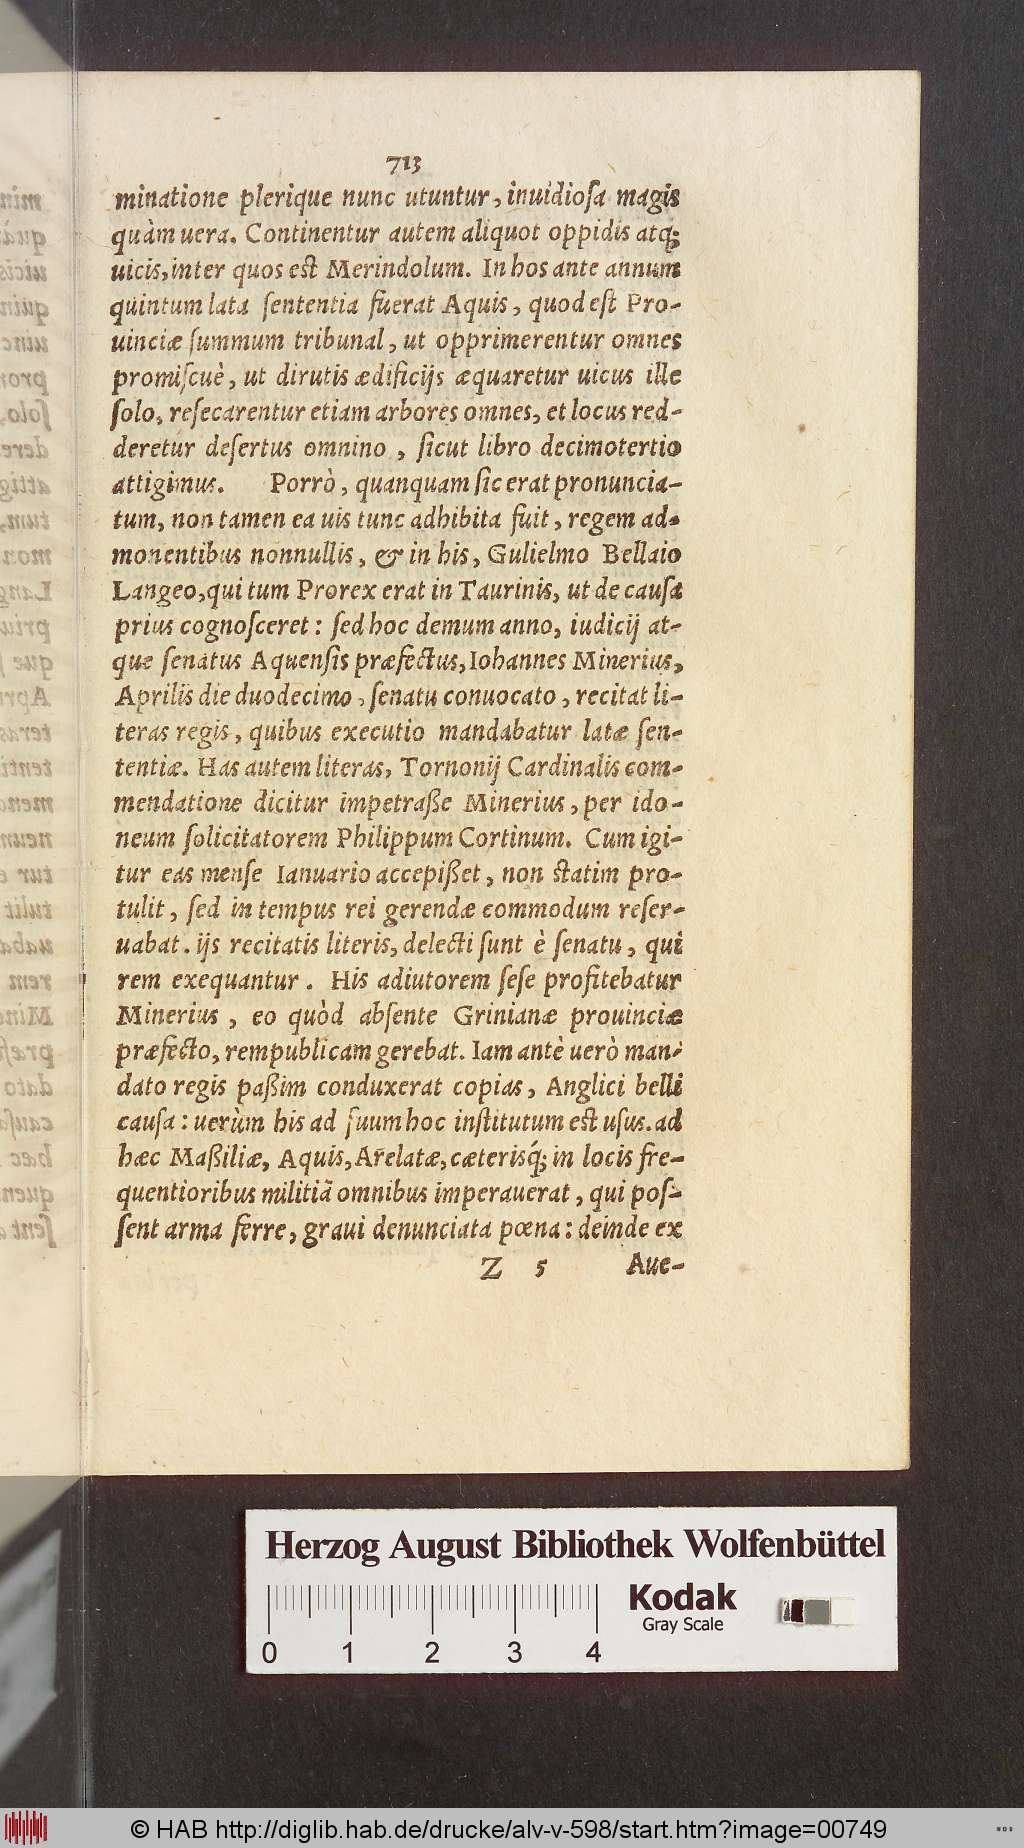 713
minatione plerique nunc utuntur, inuidioſa magis
quàm uera. Continentur autem aliquot oppidis atq;
uicis, inter quos eſt Merindolum. In hos ante annum
quintum lata ſententia fuerat Aquis, quod eſt Pro-
uinciæ ſummum tribunal, ut opprimerentur omnes
promiſcuè, ut dirutis ædificijs æquaretur uicus ille
ſolo, reſecarentur etiam arbores omnes, et locus red-
deretur deſertus omnino, ſicut libro decimotertio
attigimus. Porrò, quanquam ſic erat pronuncia-
tum, non tamen ea uis tunc adhibita fuit, regem ad-
monentibus nonnullis, & in his, Gulielmo Bellaio
Langeo, qui tum Prorex erat in Taurinis, ut de cauſa
prius cognoſceret: ſed hoc demum anno, iudicij at-
que ſenatus Aquenſis præfectus, Iohannes Minerius,
Aprilis die duodecimo, ſenatu conuocato, recitat li-
teras regis, quibus executio mandabatur latæ ſen-
tentiæ. Has autem literas, Tornonij Cardinalis com-
mendatione dicitur impetraſſe Minerius, per ido-
neum ſolicitatorem Philippum Cortinum. Cum igi-
tur eas menſe Ianuario accepiſſet, non ſtatim pro-
tulit, ſed in tempus rei gerendæ commodum reſer-
uabat. ijs recitatis literis, delecti ſunt è ſenatu, qui
rem exequantur. His adiutorem ſeſe profitebatur
Minerius, eo quòd abſente Grinianæ prouinciæ
præfecto, rempublicam gerebat. Iam antè uerò man-
dato regis paſſim conduxerat copias, Anglici belli
cauſa: uerùm his ad ſuum hoc inſtitutum eſt uſus. ad
hæc Maſſiliæ, Aquis, Arelatæ, cæterisq́; in locis fre-
quentioribus militiã omnibus imperauerat, qui poſ-
ſent arma ferre, graui denunciata pœna: deinde ex
Z 5 Aue-
Herzog August Bibliothek Wolfenbüttel
Kodak
Gray Scale
0 1 2 3 4
© HAB http://diglib.hab.de/drucke/alv-v-598/start.htm?image=00749